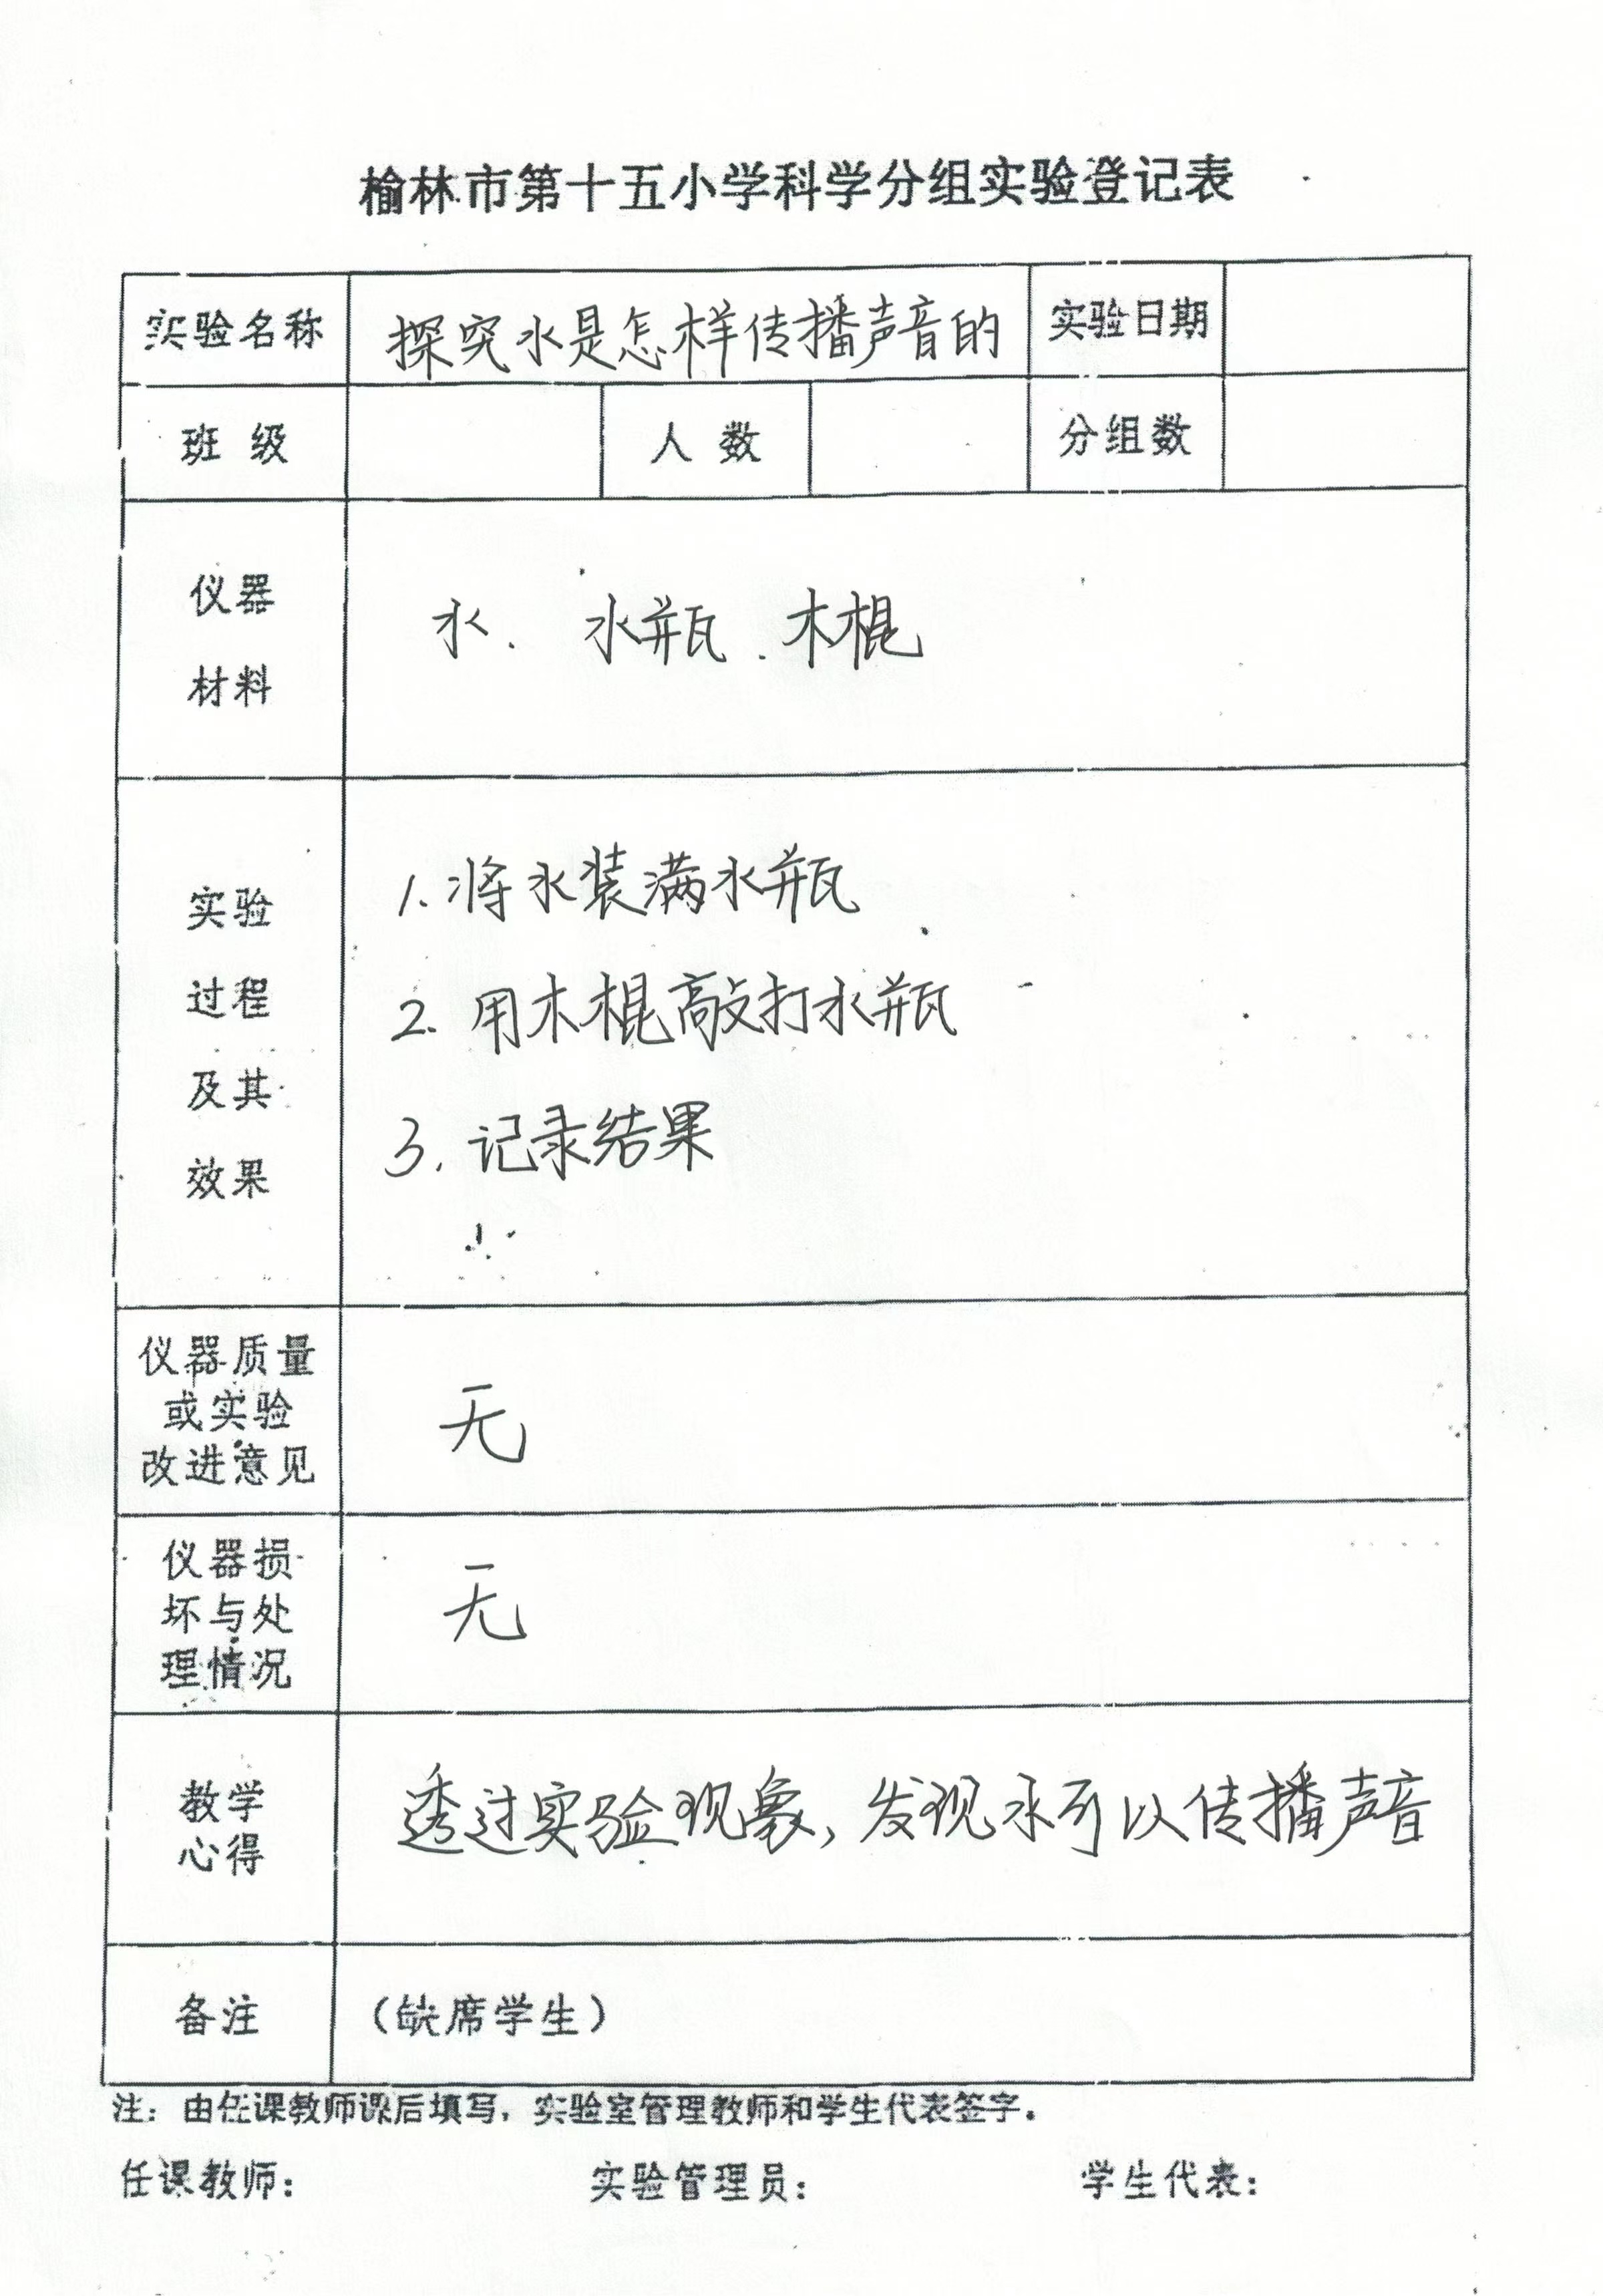 榆林市第十五小学科学分组实验登记表
实验名称 探究水是怎样传播声音的 实验日期
班 级 人 数 分组数
仪器
材料
水. 水瓶.木棍
实验
过程
及其
效果
1.将水装满水瓶
2.用木棍敲打水瓶
3.记录结果
仪器质量
或实验
改进意见
无
仪器损
坏与处
理情况
无
教学
心得
透过实验现象,发现水可以传播声音
备注 (缺席学生)
注:由任课教师课后填写,实验室管理教师和学生代表签字。
任课教师: 实验管理员: 学生代表: